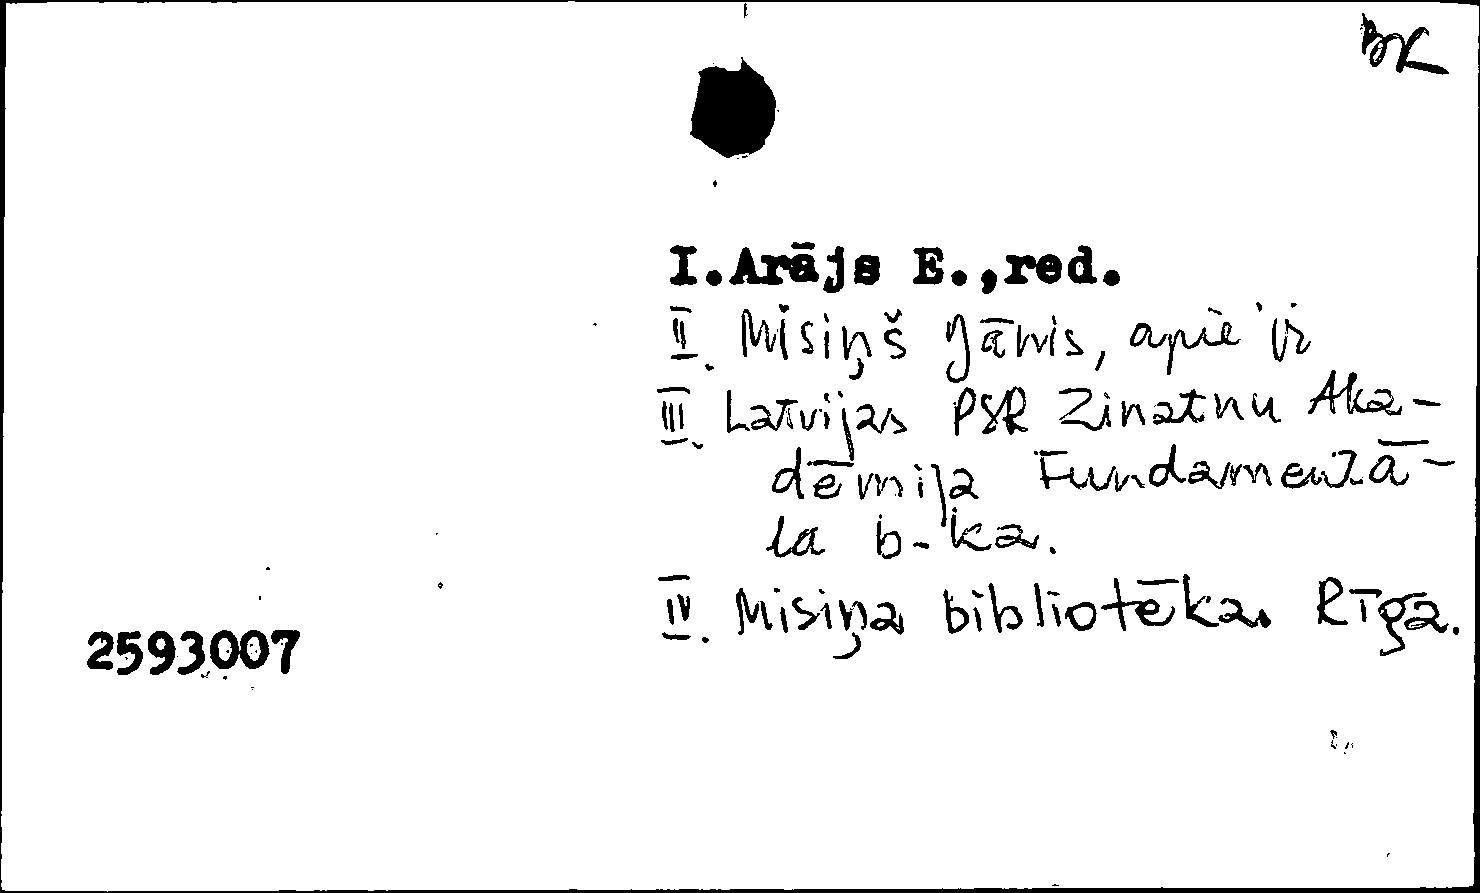 BK
I.Arājs E.,red.
II. Misiņš Jānis, apie jį
III. Latvijas PSR Zinatnu Aka-
dēmija Fundamentā-
la b-ka.
IV. Misiņa bibliotēka. Rīga.
2593007